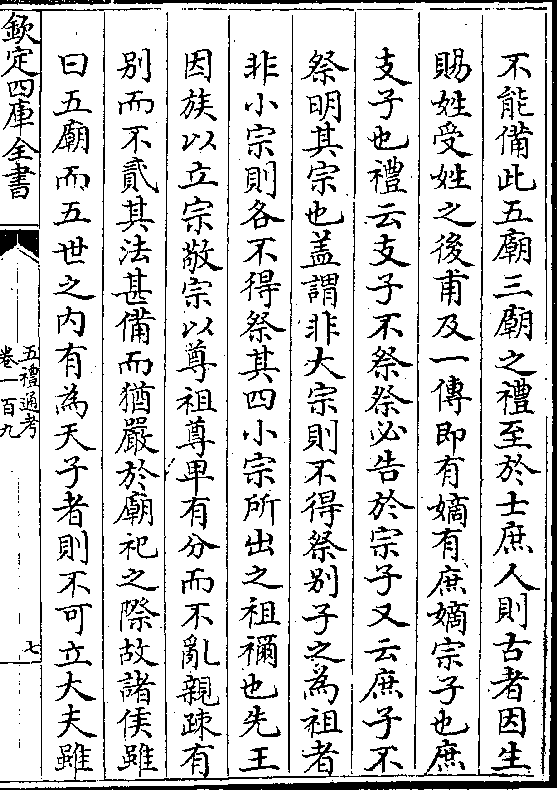 不能備此五廟三廟之禮至於士庶人則古者因生
賜姓受姓之後甫及一傳即有嫡有庶嫡宗子也庶
支子也禮云支子不祭祭必告於宗子又云庶子不
祭明其宗也盖謂非大宗則不得祭别子之為祖者
非小宗則各不得祭其四小宗所出之祖禰也先王
因族以立宗敬宗以尊祖尊卑有分而不亂親疎有
别而不貳其法甚備而猶嚴於廟祀之際故諸侯雖
曰五廟而五世之内有為天子者則不可立大夫雖
欽定四庫全書
五禮通考
卷一百九
七